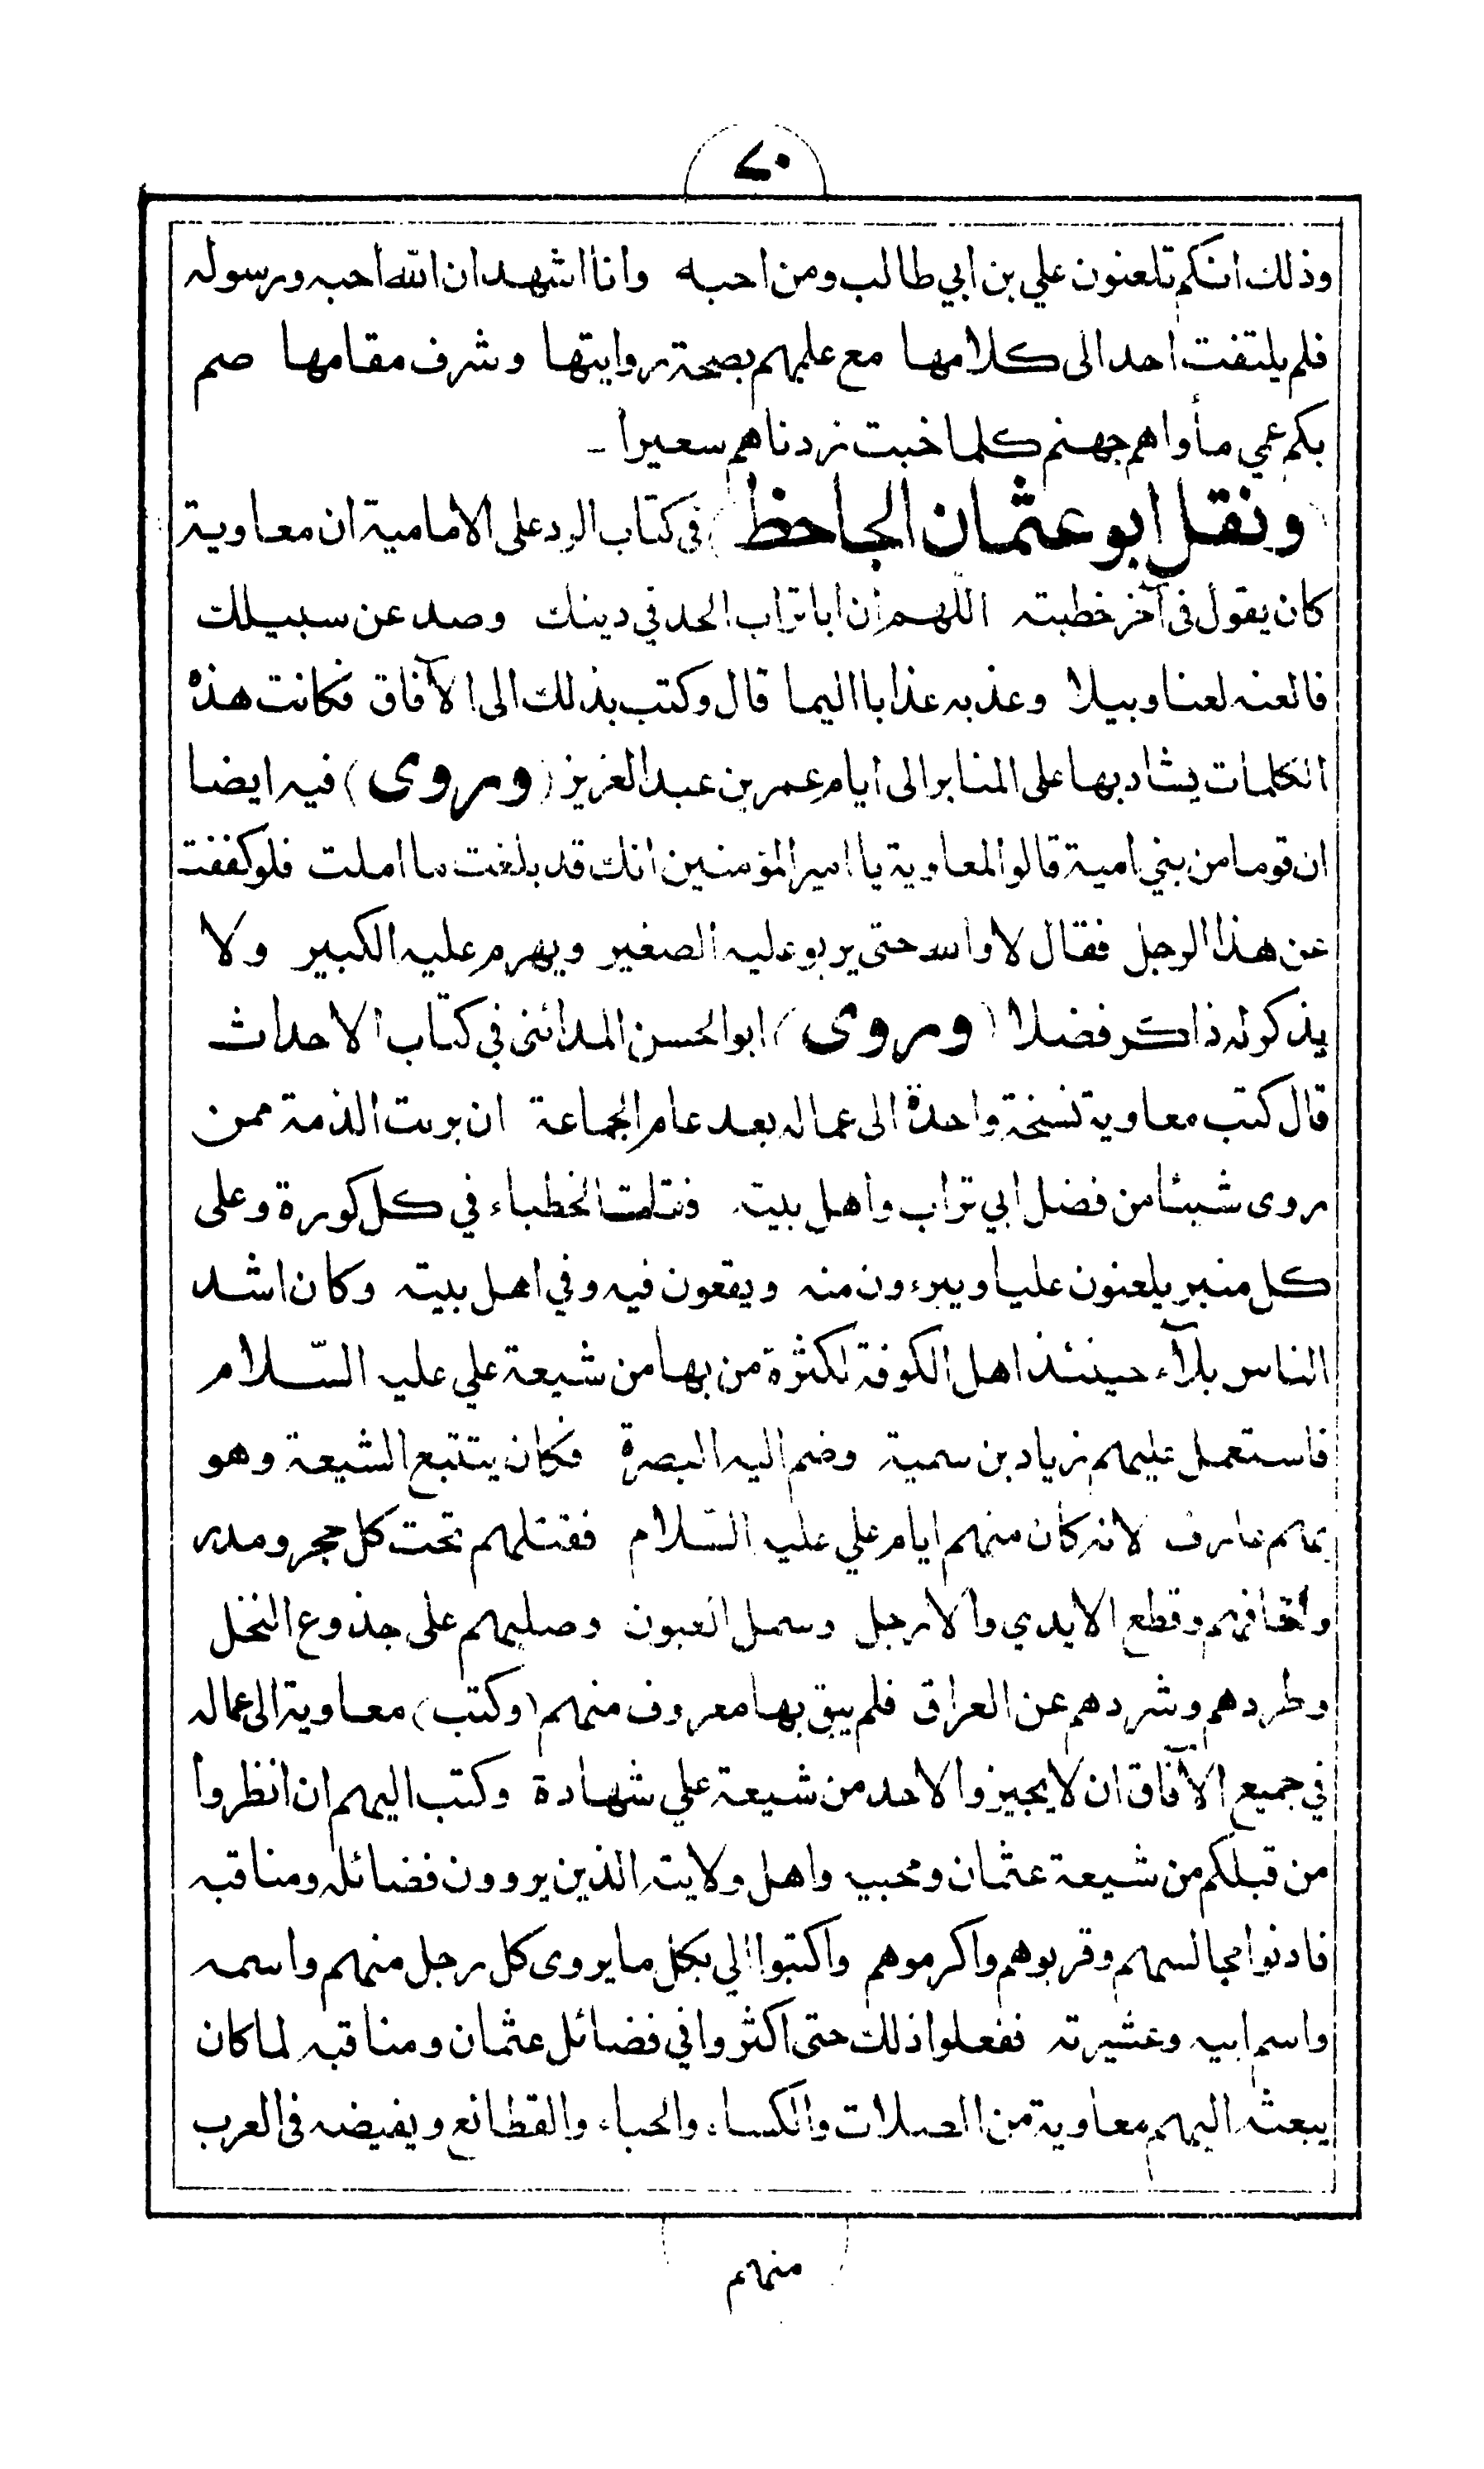 ٧٠
وذلك انكم تلعنون علي بن ابي طالب ومن احبه وانا اشهد ان الله احبه ورسوله
فلم يلتفت احد الى كلامها مع علمهم بصحة روايتها وشرف مقامها صم
بكم عمي مأواهم جهنم كلما خبت زدناهم سعيرا -
(ونقل ابو عثمان الجاحظ) في كتاب الرد على الامامية ان معاوية
كان يقول في آخر خطبته اللهم ان ابا تراب الحد في دينك وصد عن سبيلك
فالعنه لعنا وبيلا وعذبه عذابا اليما قال وكتب بذلك الى الآفاق فكانت هذه
الكلمات يشاد بها على المنابر الى ايام عمر بن عبد العزيز (وروى) فيه ايضا
ان قوما من بني امية قالوا لمعاوية يا امير المؤمنين انك قد بلغت ما املت فلو كففت
عن هذا الرجل فقال لا والله حتى يربو عليه الصغير ويهرم عليه الكبير ولا
يذكر له ذاكر فضلا (وروى) ابو الحسن المدائني في كتاب الاحداث
قال كتب معاوية نسخة واحدة الى عماله بعد عام الجماعة ان برئت الذمة ممن
روى شيئا من فضل ابي تراب واهل بيته فقامت الخطباء في كل كورة وعلى
كل منبر يلعنون عليا ويبرءون منه ويقعون فيه وفي اهل بيته وكان اشد
الناس بلآء حينئذ اهل الكوفة لكثرة من بها من شيعة علي عليه السّلام
فاستعمل عليهم زياد بن سمية وضم اليه البصرة فكان يتتبع الشيعة وهو
بهم عارف لانه كان منهم ايام علي عليه السّلام فقتلهم تحت كل حجر ومدر
واخافهم وقطع الايدي والارجل وسمل العيون وصلبهم على جذوع النخل
وطردهم وشردهم عن العراق فلم يبق بها معروف منهم (وكتب) معاوية الى عماله
في جميع الآفاق ان لا يجيزوا لاحد من شيعة علي شهادة وكتب اليهم ان انظروا
من قبلكم من شيعة عثمان ومحبيه واهل ولايته الذين يروون فضائله ومناقبه
فادنوا مجالسهم وقربوهم واكرموهم واكتبوا الي بكل ما يروى كل رجل منهم واسمه
واسم ابيه وعشيرته ففعلوا ذلك حتى اكثروا في فضائل عثمان ومناقبه لما كان
يبعثه اليهم معاوية من الصلات والكساء والحباء والقطائع ويفيضه في العرب
منهم